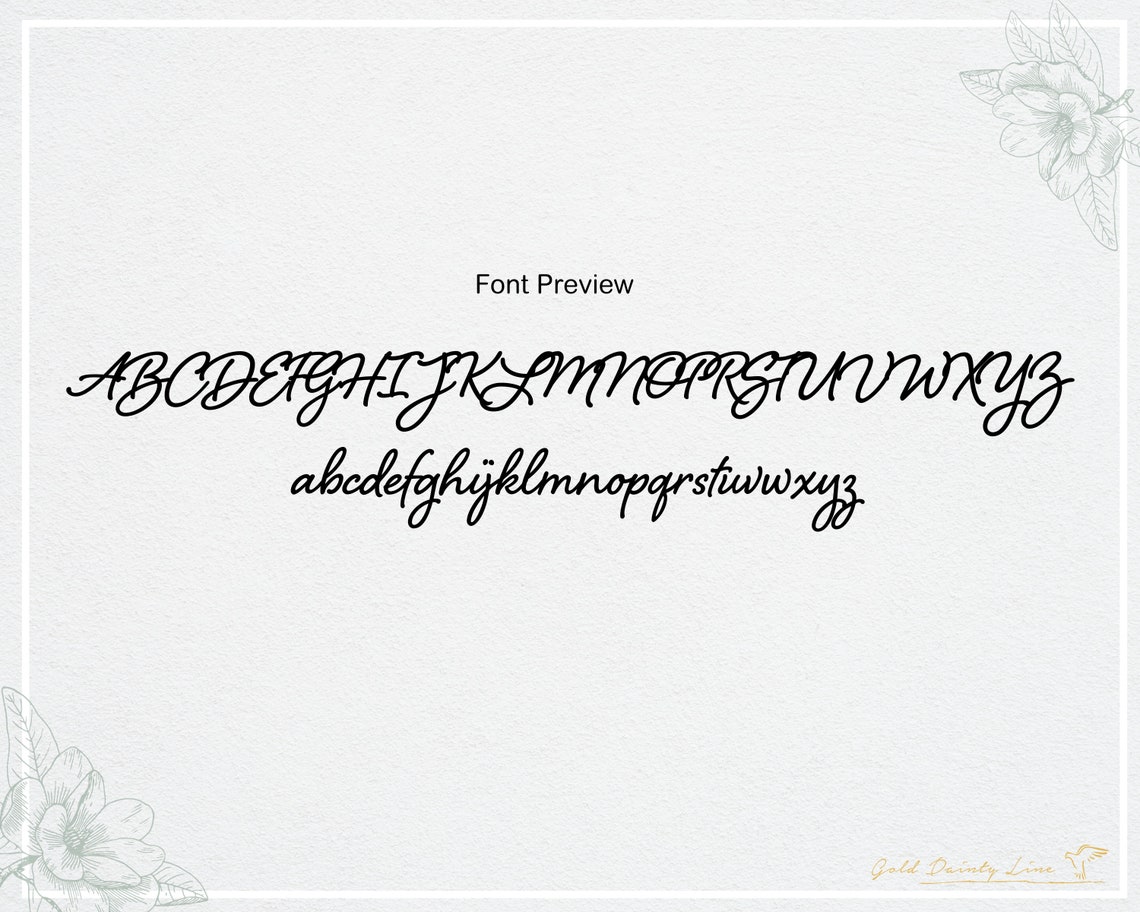 Font Preview
ABCDEFGHIJKLMNOPRSTUVWXYZ
abcdefghijklmnopqrstuvwxyz
Gold Dainty Line